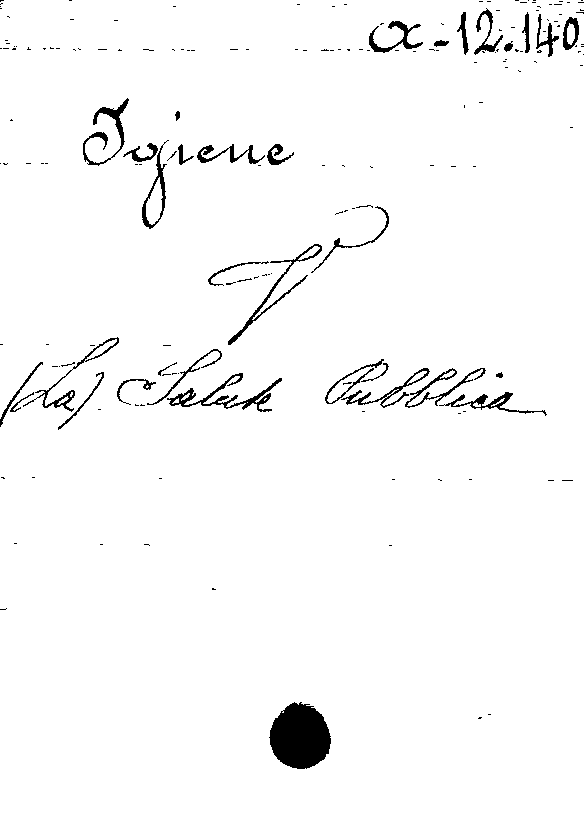 α-12.140
Igiene
V
(La) Salute Pubblica